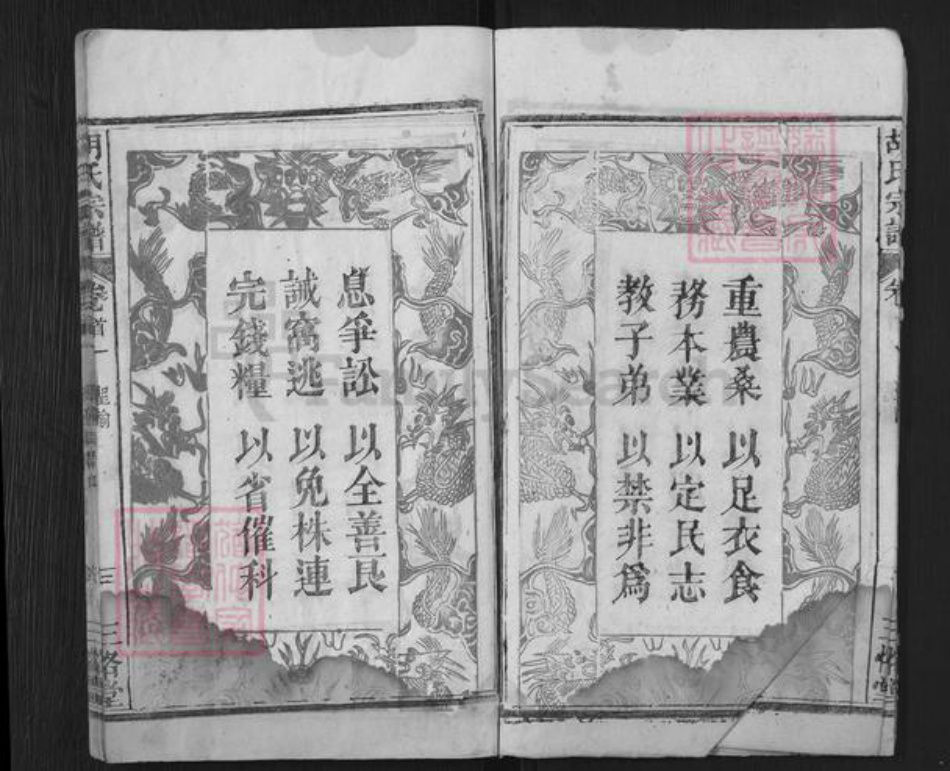 胡氏宗譜
重農桑 以足衣食
務本業 以定民志
教子弟 以禁非爲
息爭訟 以全善良
誡窩逃 以免株連
完錢糧 以省催科
胡氏宗譜 卷首一 聖諭 三
FamilySearch